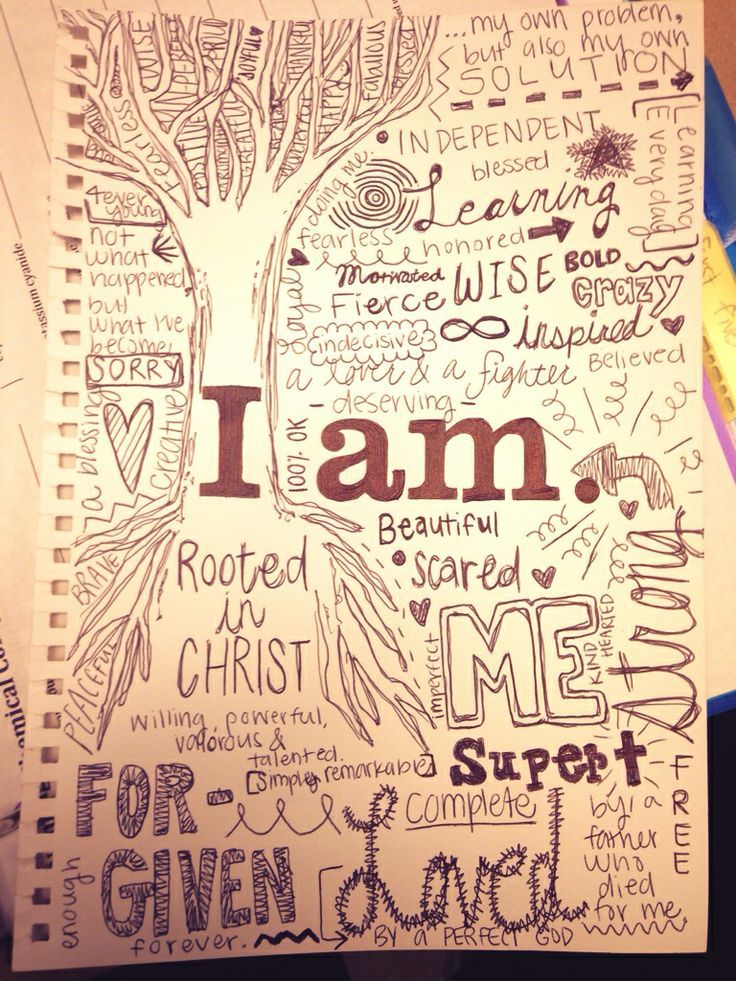 ...my own problem,
but also my own
SOLUTION
Learning
Everyday
WISE
JOYFUL
THANKFUL
Fabulous
Blessed
Fearless
POSITIVE
GREATFUL
HAPPY
INDEPENDENT
blessed
doing me.
Learning
4ever
young
fearless
honored
not
what
happened,
but
what I've
become
Motivated
WISE
BOLD
Fierce
crazy
loyal
indecisive
inspired
Believed
SORRY
a lover & a fighter
- deserving -
a blessing
creative
100% OK
I am.
Beautiful
scared
Strong
BRAVE
Rooted
in
CHRIST
ME
KIND
HEARTED
imperfect
PEACEFUL
willing, powerful,
valorous &
talented.
[simply remarkable]
Supert
FREE
FOR-
GIVEN
complete
Loved
by a
father
who
died
for me
enough
forever.
BY A PERFECT GOD
tassium cyanide